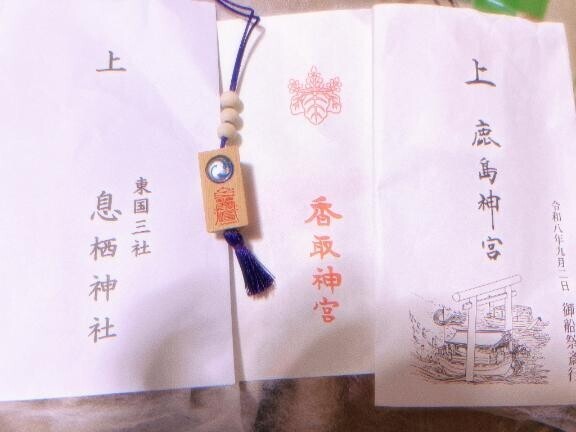 上
東国三社
息栖神社
香取神宮
上
鹿島神宮
令和八年九月二日
御船祭斎行